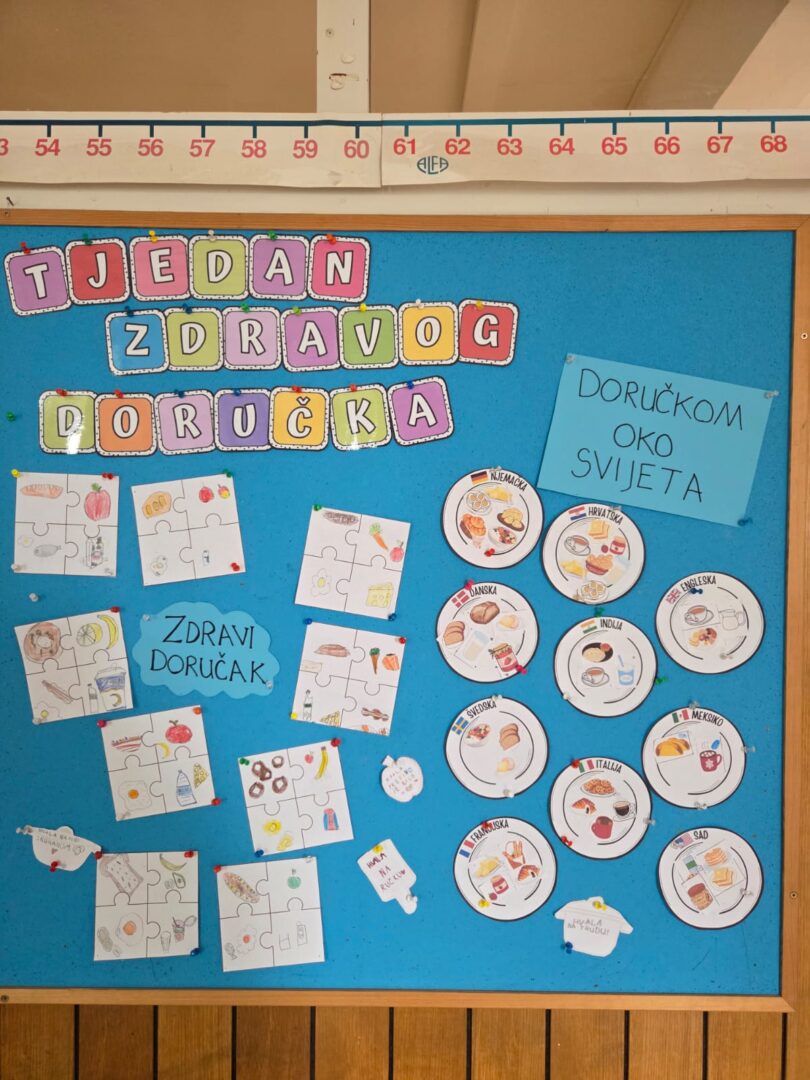 54 55 56 57 58 59 60 61 62 63 64 65 66 67 68
ALFA
TJEDAN
ZDRAVOG
DORUČKA
DORUČKOM
OKO
SVIJETA
ZDRAVI
DORUČAK
NJEMAČKA
HRVATSKA
DANSKA
INDIJA
ENGLESKA
ŠVEDSKA
ITALIJA
MEKSIKO
FRANCUSKA
SAD
HVALA
NA
RUČKU
HVALA
NA TRUDU!